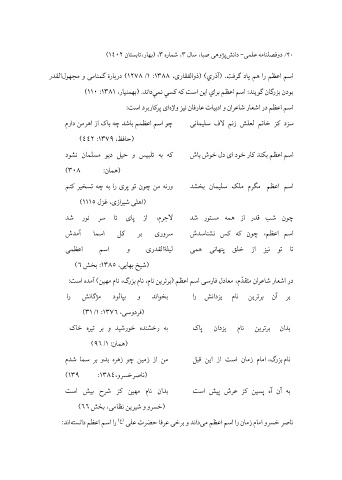 ۲۰/ دوفصلنامه علمی- دانش‌پژوهی صبا، سال ۳، شماره ۳، (بهار،تابستان ۱۴۰۲)
اسم اعظم را هم یاد گرفت. (آذری) (ذوالفقاری، ۱۳۸۸: ۱/ ۱۲۷۸) دربارهٔ گمنامی و مجهول‌القدر
بودن بزرگان گویند: اسم اعظم برای این است که کسی نمی‌داند. (بهمنیار، ۱۳۸۱: ۱۱۰)
اسم اعظم در اشعار شاعران و ادبیات عارفان نیز واژه‌ای پرکاربرد است:
سزد کز خاتم لعلش زنم لاف سلیمانی چو اسم اعظمم باشد چه باک از اهرمن دارم
(حافظ، ۱۳۷۹: ۴۴۲)
اسم اعظم بکند کار خود ای دل خوش باش که به تلبیس و حیل دیو مسلمان نشود
(همان: ۳۰۸)
اسم اعظم مگرم ملک سلیمان بخشد ورنه من چون تو پری را به چه تسخیر کنم
(اهلی شیرازی، غزل ۱۱۱۵)
چون شب قدر از همه مستور شد لاجرم، از پای تا سر نور شد
اسم اعظم، چون که کس نشناسدش سروری بر کل اسما آمدش
تا تو نیز از خلق پنهانی همی لیلةالقدری و اسم اعظمی
(شیخ بهایی، ۱۳۸۵: بخش ۶)
در اشعار شاعران متقدّم، معادل فارسی اسم اعظم (برترین نام، نام بزرگ، نام مهین) آمده است:
بر آن برترین نام یزدانش را بخواند و بپالود مژگانش را
(فردوسی، ۱۳۷۶: ۳۱/۱)
بدان برترین نام یزدان پاک به رخشنده خورشید و بر تیره خاک
(همان: ۹۶/۱)
نام بزرگ، امام زمان است از این قبل من از زمین چو زهره بدو بر سما شدم
(ناصرخسرو،۱۳۸۴: ۱۳۹)
به آن آه پسین کز عرش پیش است بدان نام مهین کز شرح بیش است
(خسرو و شیرین نظامی، بخش ۶۶)
ناصر خسرو امام زمان را اسم اعظم می‌داند و برخی عرفا حضرت علی (ع) را اسم اعظم دانسته‌اند: